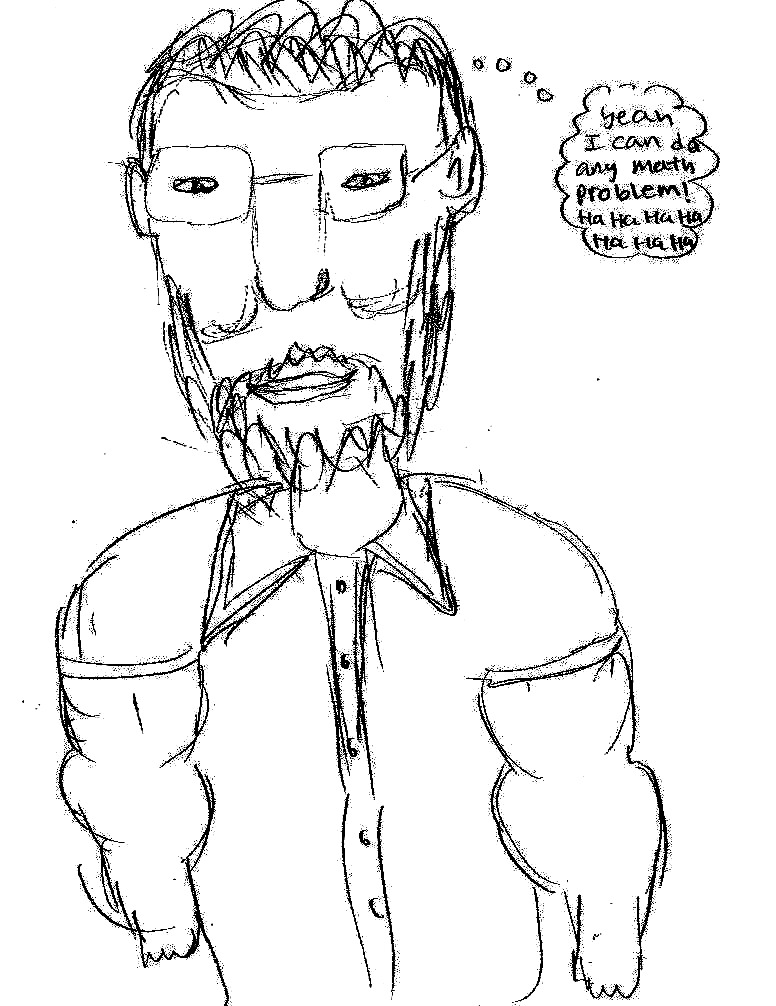 yeah
I can do
any math
problem!
Ha Ha Ha Ha
Ha Ha Ha